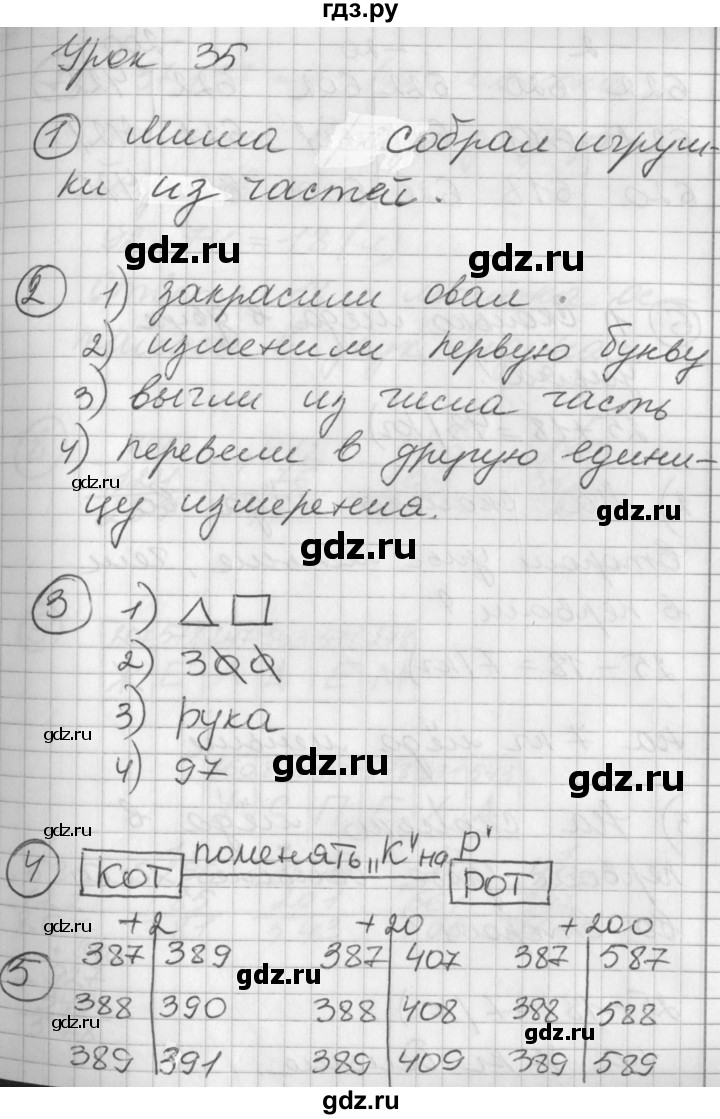 гдз.ру
Урок 35
1 Миша собрал игруш-
ки из частей.
gdz.ru
gdz.ru
2 1) закрасили овал.
2) изменили первую букву
3) вычли из числа часть
4) перевели в другую едини-
gdz.ru
цу измерения.
gdz.ru
gdz.ru
3 1) △ □
2) 3
3) рука
gdz.ru
4) 97
gdz.ru
gdz.ru
gdz.ru
4 КОТ поменять „К" на Р' РОТ
+2 +20 +200
5 387 389 387 407 387 587
gdz.ru
388 390 388 408 388 588
gdz.ru
gdz.ru
389 391 389 409 389 589
gdz.ru
gdz.ru
gdz.ru